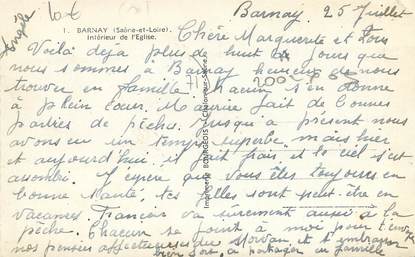 Barnay 25 Juillet
1. BARNAY (Saône-et-Loire).
Intérieur de l'Eglise.
Chère Marguerite et Lou
Voilà déjà plus de huit jours que
nous sommes à Barnay heureux de nous
trouver en famille chacun s'en donne
à plein cœur. Maurice fait de bonnes
parties de pêche. Jusqu'à présent nous
avons eu un temps superbe, mais hier
et aujourd'hui, il fait frais et le ciel s'est
assombri. J'espère que vous êtes toujours en
bonne santé, tes filles sont peut-être en
vacances François va sûrement aussi à la
pêche. Chacun se joint à moi pour t'envoyer
nos pensées affectueuses du Morvan et t'embrasser
bien fort, à partager en famille
Imprimerie BOURGEOIS - Chalon-sur-Saône